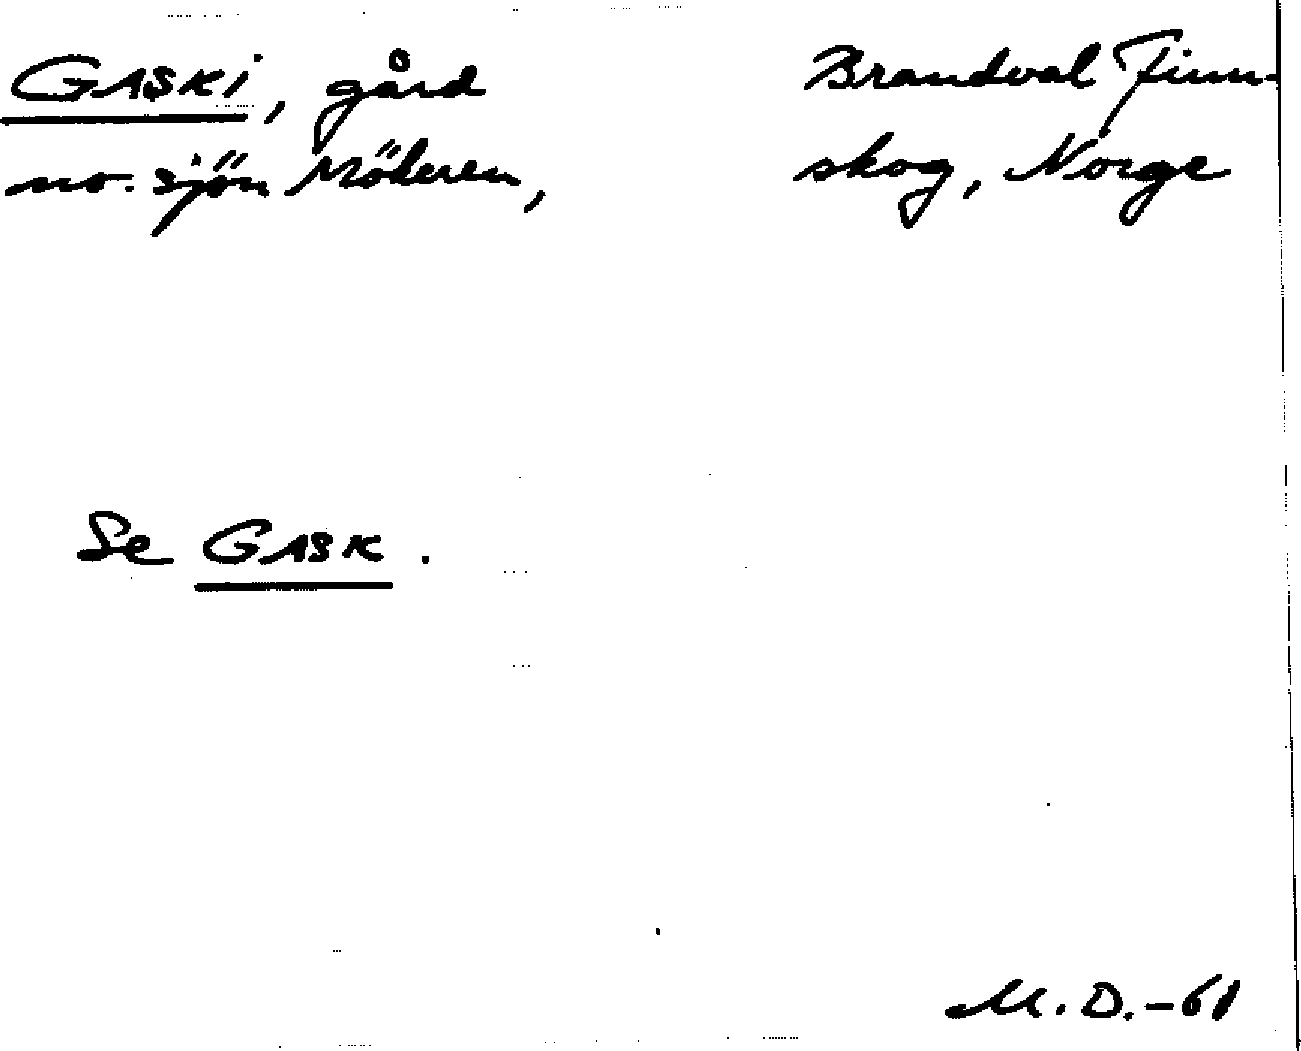 GASKI, gård
no. sjön Mökeren,
Brandval Finn-
skog, Norge
Se GASK.
M.D.-61